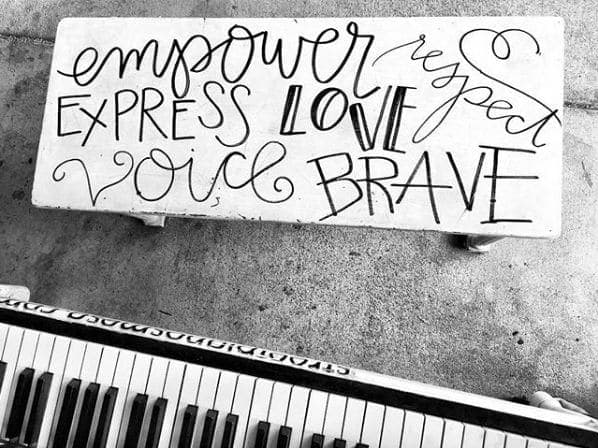 empower
respect
EXPRESS LOVE
voice BRAVE